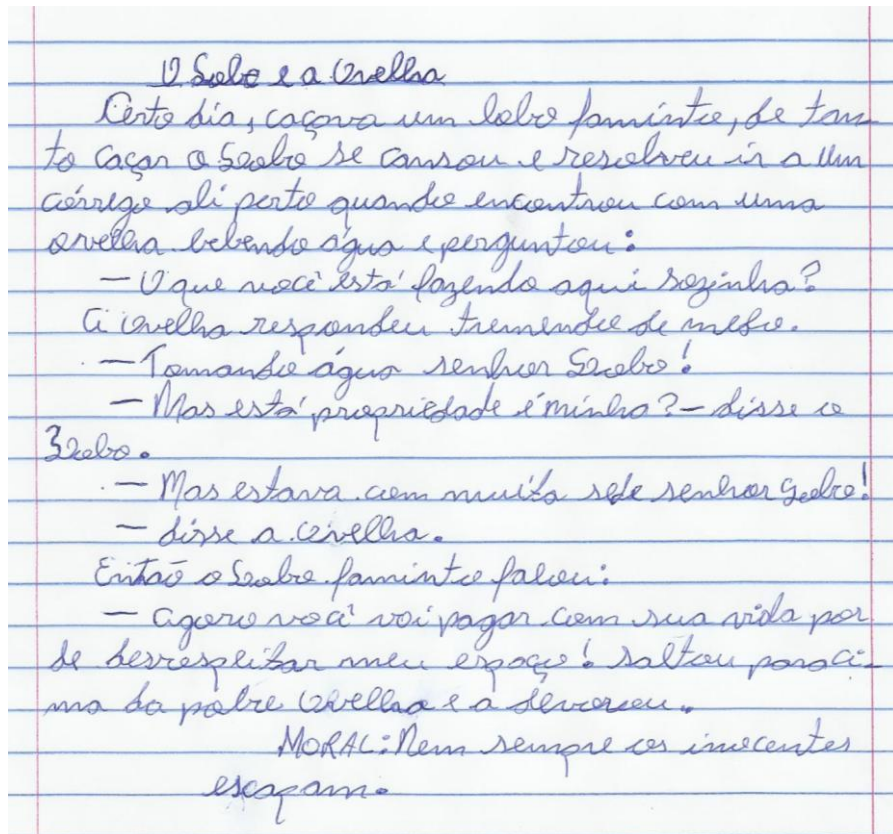 O Lobo e a Ovelha
Certo dia, caçava um lobo faminto, de tan-
to caçar o Lobo se cansou e resolveu ir a um
córrego ali perto quando encontrou com uma
ovelha bebendo água e perguntou:
— O que você está fazendo aqui sozinha?
A ovelha respondeu tremendo de medo.
— Tomando água senhor Lobo!
— Mas está propriedade é minha? — disse o
Lobo.
— Mas estava com muita sede senhor Lobo!
— disse a ovelha.
Então o Lobo faminto falou:
— Agora você vai pagar com sua vida por
de desrespeitar meu espaço! saltou para ci-
ma da pobre Ovelha e a devorou.
MORAL: Nem sempre os inocentes
escapam.